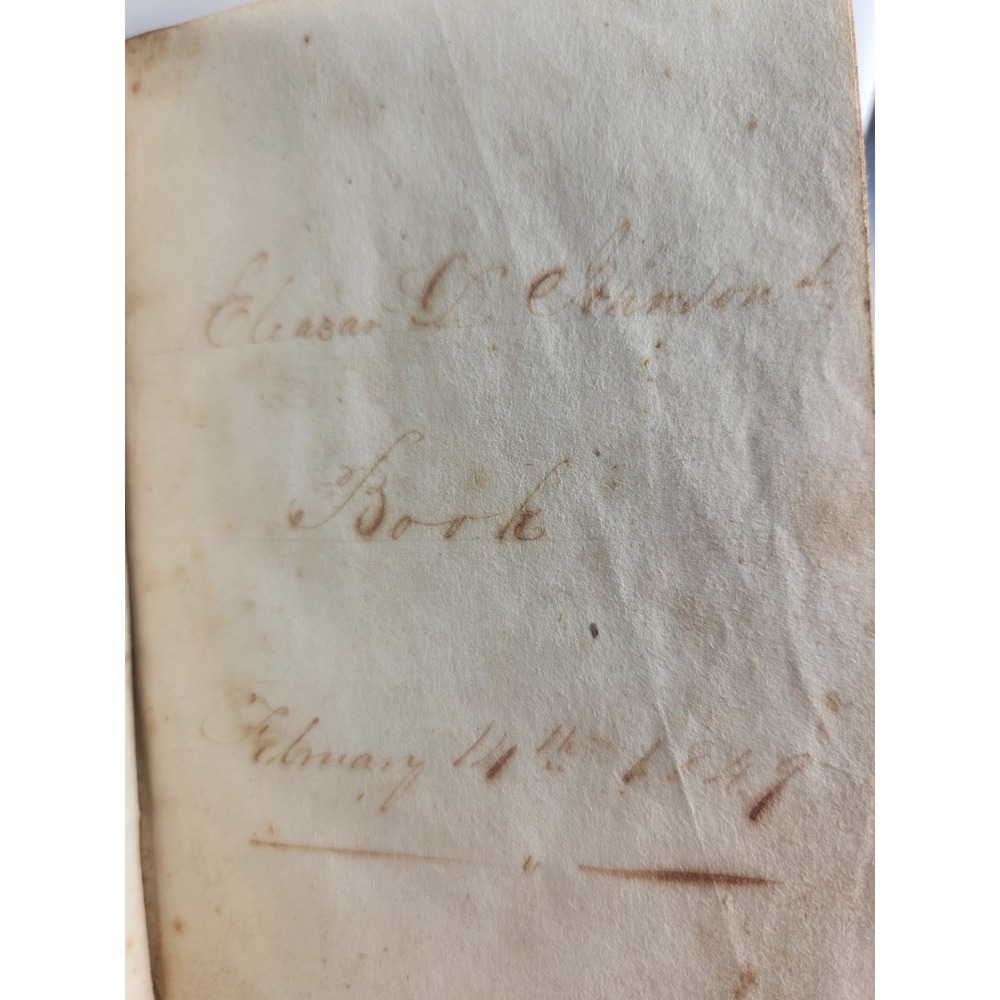 Eleazar
Book
February 14th 1849